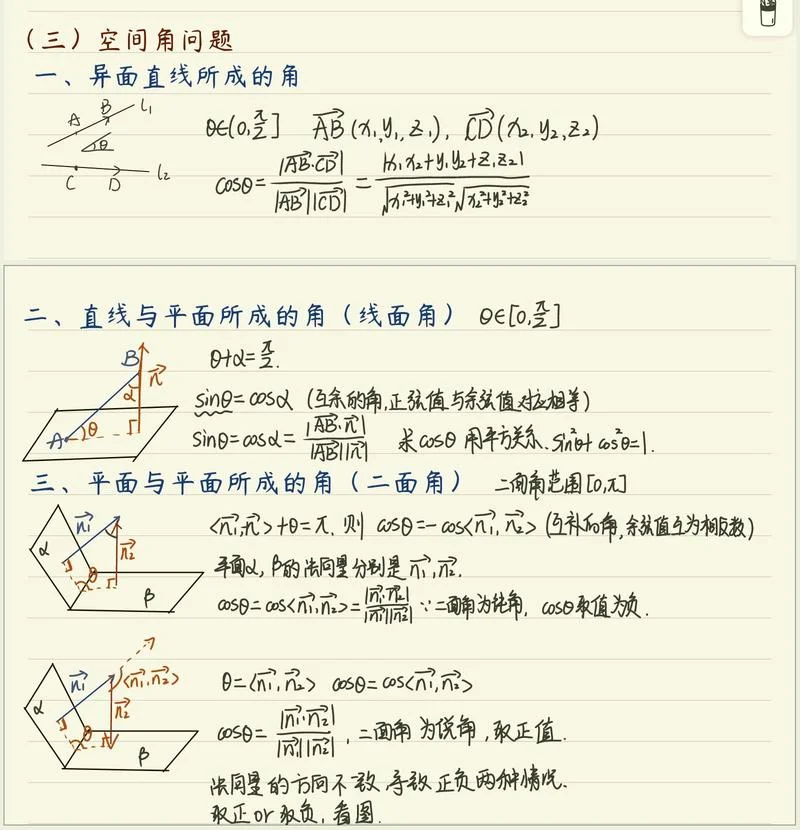 (三) 空间角问题
一、异面直线所成的角
A B l₁ θ C D l₂
θ∈(0,π/2] AB→(x₁,y₁,z₁), CD→(x₂,y₂,z₂)
cosθ=|AB→·CD→|/|AB→||CD→| = |x₁x₂+y₁y₂+z₁z₂|/√x₁²+y₁²+z₁²√x₂²+y₂²+z₂²
二、直线与平面所成的角(线面角) θ∈[0,π/2]
B n→ α A θ
θ+α=π/2.
sinθ=cosα (互余的角,正弦值与余弦值对应相等)
sinθ=cosα=|AB→·n→|/|AB→||n→| 求cosθ用平方关系.sin²θ+cos²θ=1.
三、平面与平面所成的角(二面角) 二面角范围[0,π]
α n₁→ n₂→ θ β
<n₁→,n→>+θ=π.则 cosθ=-cos<n₁→,n₂→> (互补的角,余弦值互为相反数)
平面α,β的法向量分别是n₁→,n₂→.
cosθ=cos<n₁→,n₂→>=|n₁→·n₂→|/|n₁→||n₂→| ∵二面角为钝角, cosθ取值为负.
α n₁→ <n₁→,n₂→> n₂→ θ β
θ=<n₁→,n₂→> cosθ=cos<n₁→,n₂→>
cosθ=|n₁→·n₂→|/|n₁→||n₂→|, 二面角为锐角,取正值.
法向量的方向不一致,导致正负两种情况.
取正or取负,看图.